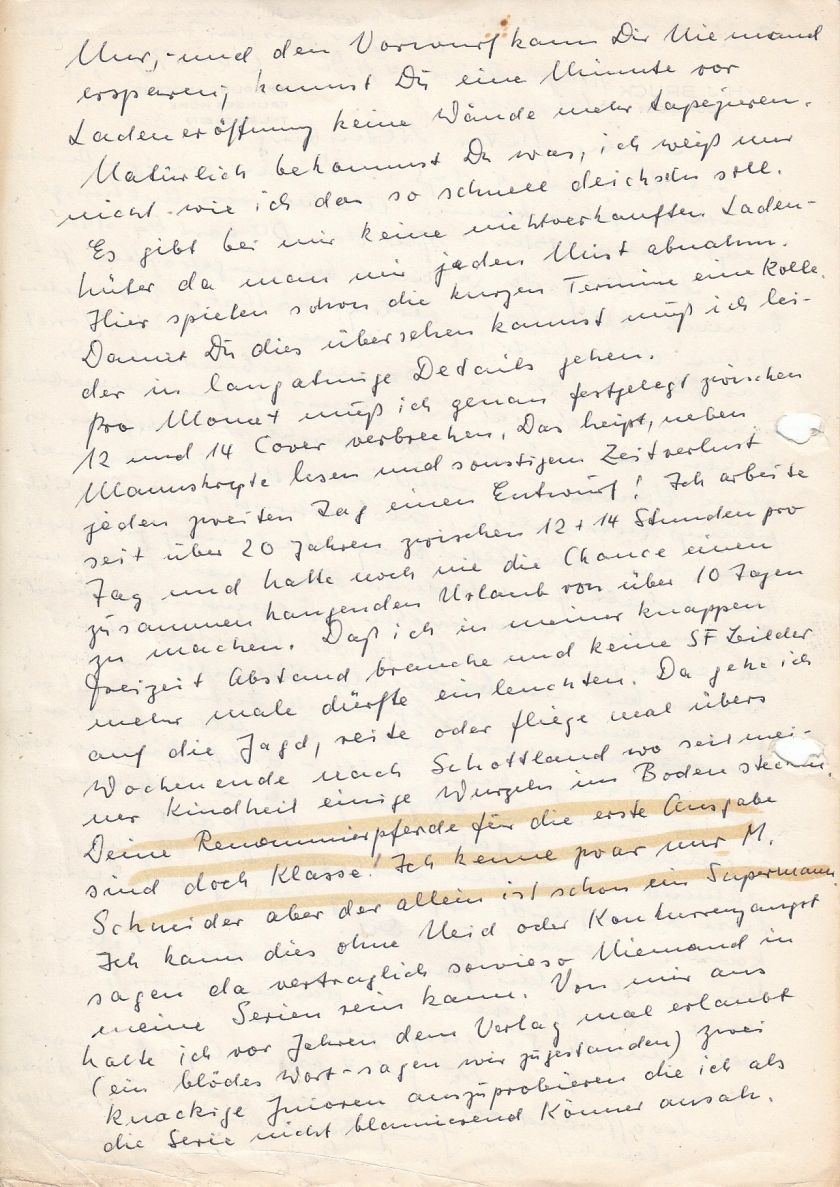 Nur, - und den Vorwurf kann Dir Niemand
ersparen, kannst Du eine Minute vor
Ladeneröffnung keine Wände mehr tapezieren.
Natürlich bekommst Du was, ich weiß nur
nicht wie ich das so schnell deichseln soll.
Es gibt bei mir keine nichtverkauften Laden-
hüter da man mir jeden Mist abnahm.
Hier spielen schon die kurzen Termine eine Rolle.
Damit Du dies übersehen kannst muß ich lei-
der in langatmige Details gehen.
Pro Monat muß ich genau festgelegt zwischen
12 und 14 Cover verbrechen. Das heißt, neben
Manuskripte lesen und sonstigem Zeitverlust
jeden zweiten Tag einen Entwurf! Ich arbeite
seit über 20 Jahren zwischen 12 + 14 Stunden pro
Tag und hatte noch nie die Chance einen
zusammenhangenden Urlaub von über 10 Tagen
zu machen. Daß ich in meiner knappen
Freizeit Abstand brauche und keine SF Bilder
mehr male dürfte einleuchten. Da gehe ich
auf die Jagd, reite oder fliege mal übers
Wochenende nach Schottland wo seit mei-
ner Kindheit einige Wurzeln im Boden stecken.
Deine Renommierpferde für die erste Ausgabe
sind doch Klasse! Ich kenne zwar nur M.
Schneider aber der allein ist schon ein Supermann.
Ich kann dies ohne Neid oder Konkurrenzangst
sagen da vertraglich sowieso Niemand in
meine Serien rein kann. Von mir aus
hatte ich vor Jahren dem Verlag mal erlaubt
(ein blödes Wort - sagen wir zugestanden) zwei
knackige Junioren auszuprobieren die ich als
die Serie nicht blamierend Könner ansah.